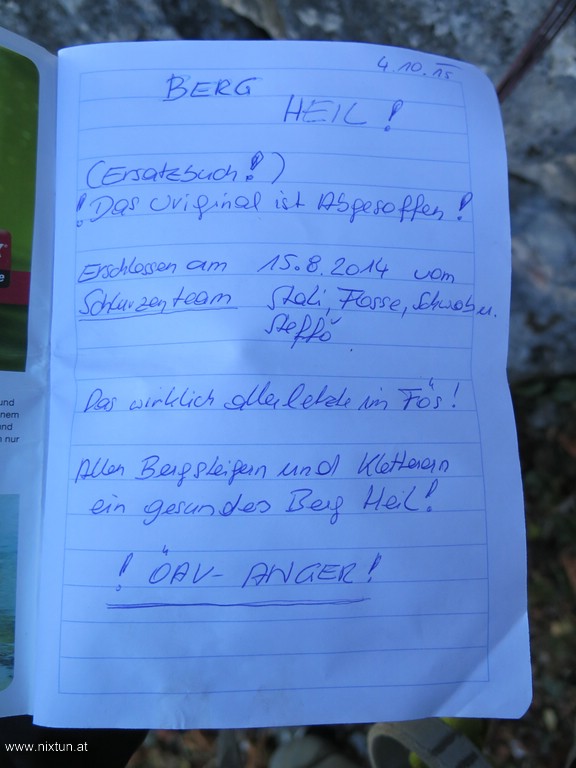 4.10.15
BERG
HEIL!
(Ersatzbuch!)
! Das Original ist Abgesoffen!
Erschlossen am 15.8.2014 vom
Schurzenteam Stoli, Flosse, Schwob u.
Steffö
Das wirklich allerletzte im Fös!
Allen Bergsteigern und Kletterern
ein gesundes Berg Heil!
! ÖAV-ANGER!
und
nem
und
n nur
www.nixtun.at